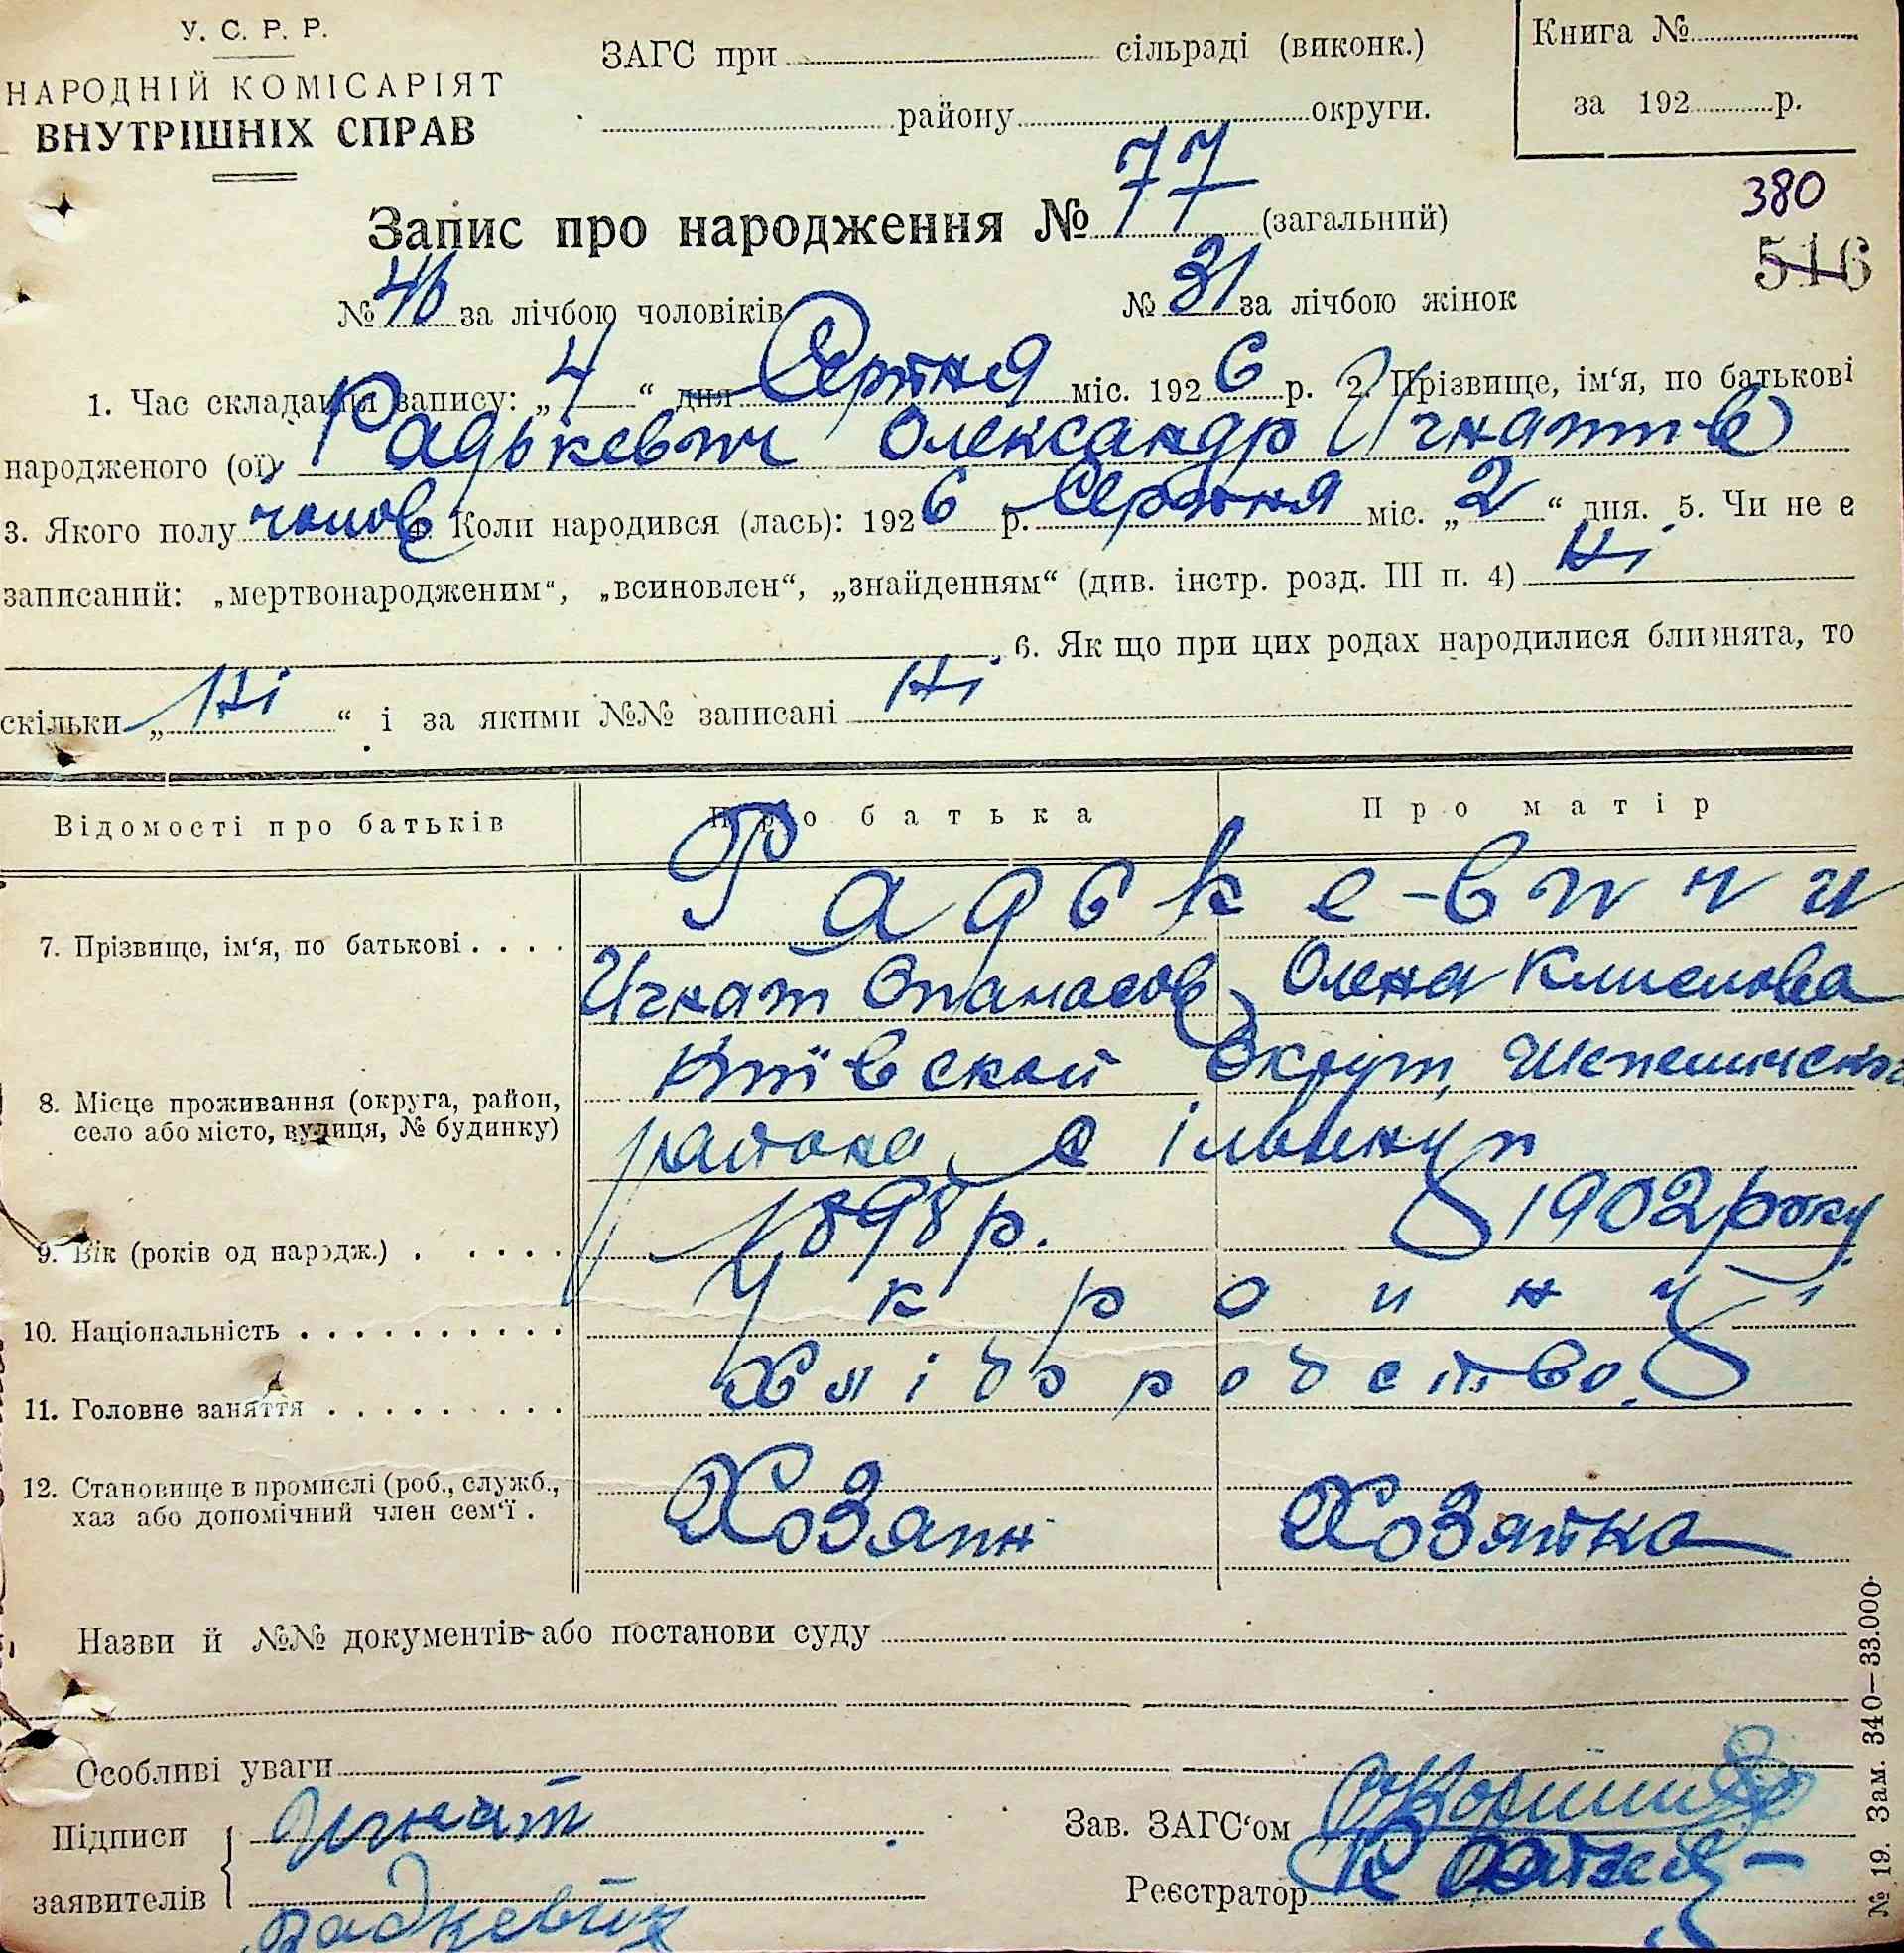 У. С. Р. Р.
НАРОДНІЙ КОМІСАРІЯТ
ВНУТРІШНІХ СПРАВ
ЗАГС при сільраді (виконк.)
району округи.
Книга №
за 192 р.
380
516
Запис про народження № 77 (загальний)
№ 46 за лічбою чоловіків № 31 за лічбою жінок
1. Час складання запису: „4“ дня Серпня міс. 1926 р. 2. Прізвище, ім‘я, по батькові
народженого (ої) Радькевич Олександр Ігнатів
3. Якого полу чолов 4. Коли народився (лась): 1926 р. Серпня міс. „2“ дня. 5. Чи не є
записаний: „мертвонародженим“, „всиновлен“, „знайденням“ (див. інстр. розд. III п. 4) Ні
6. Як що при цих родах народилися близнята, то
скільки „Ні“ і за якими №№ записані Ні
Відомості про батьків Про батька Про матір
Радькевичи
7. Прізвище, ім‘я, по батькові . . . .
Игнат Опанасов Олена Климова
Київской Округи,
8. Місце проживання (округа, район,
село або місто, вулиця, № будинку)
района, с
9. Вік (років од нардж.) . . . . . 1898 р. 1902 року
10. Національність . . . . . . . . . . . Украинці
11. Головне заняття . . . . . . . . . Хліборобство.
12. Становище в промислі (роб., служб.,
хаз або допомічний член сем‘ї .
Хозяин Хозяйка
Назви й №№ документів або постанови суду
Особливі уваги
Підписи Игнат
заявителів Радкевич
Зав. ЗАГС‘ом
Реєстратор
№ 19. Зам. 340—33.000.